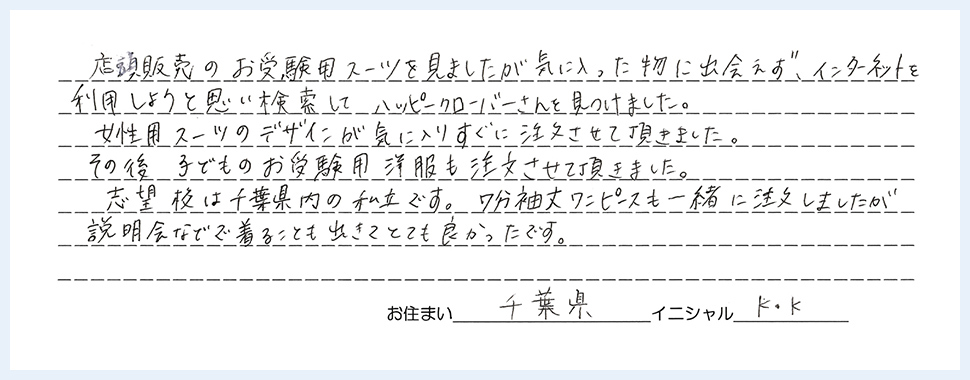 店頭販売のお受験用スーツを見ましたが気に入った物に出会えず、インターネットを
利用しようと思い検索してハッピークローバーさんを見つけました。
女性用スーツのデザインが気に入りすぐに注文させて頂きました。
その後 子どものお受験用 洋服も注文させて頂きました。
志望校は千葉県内の私立です。7分袖丈ワンピースも一緒に注文しましたが
説明会などで着ることも出きてとても良かったです。
お住まい 千葉県 イニシャル K.K